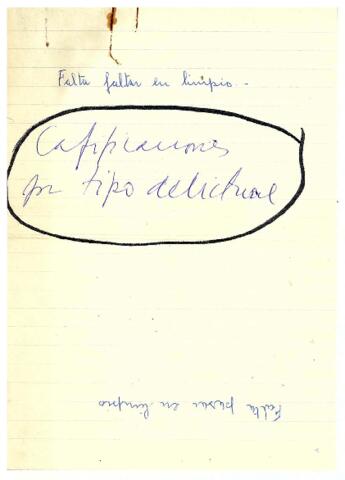 Falta faltar en limpio.-
Cafipiaciones
por tipo delictual
Falta pasar en limpio